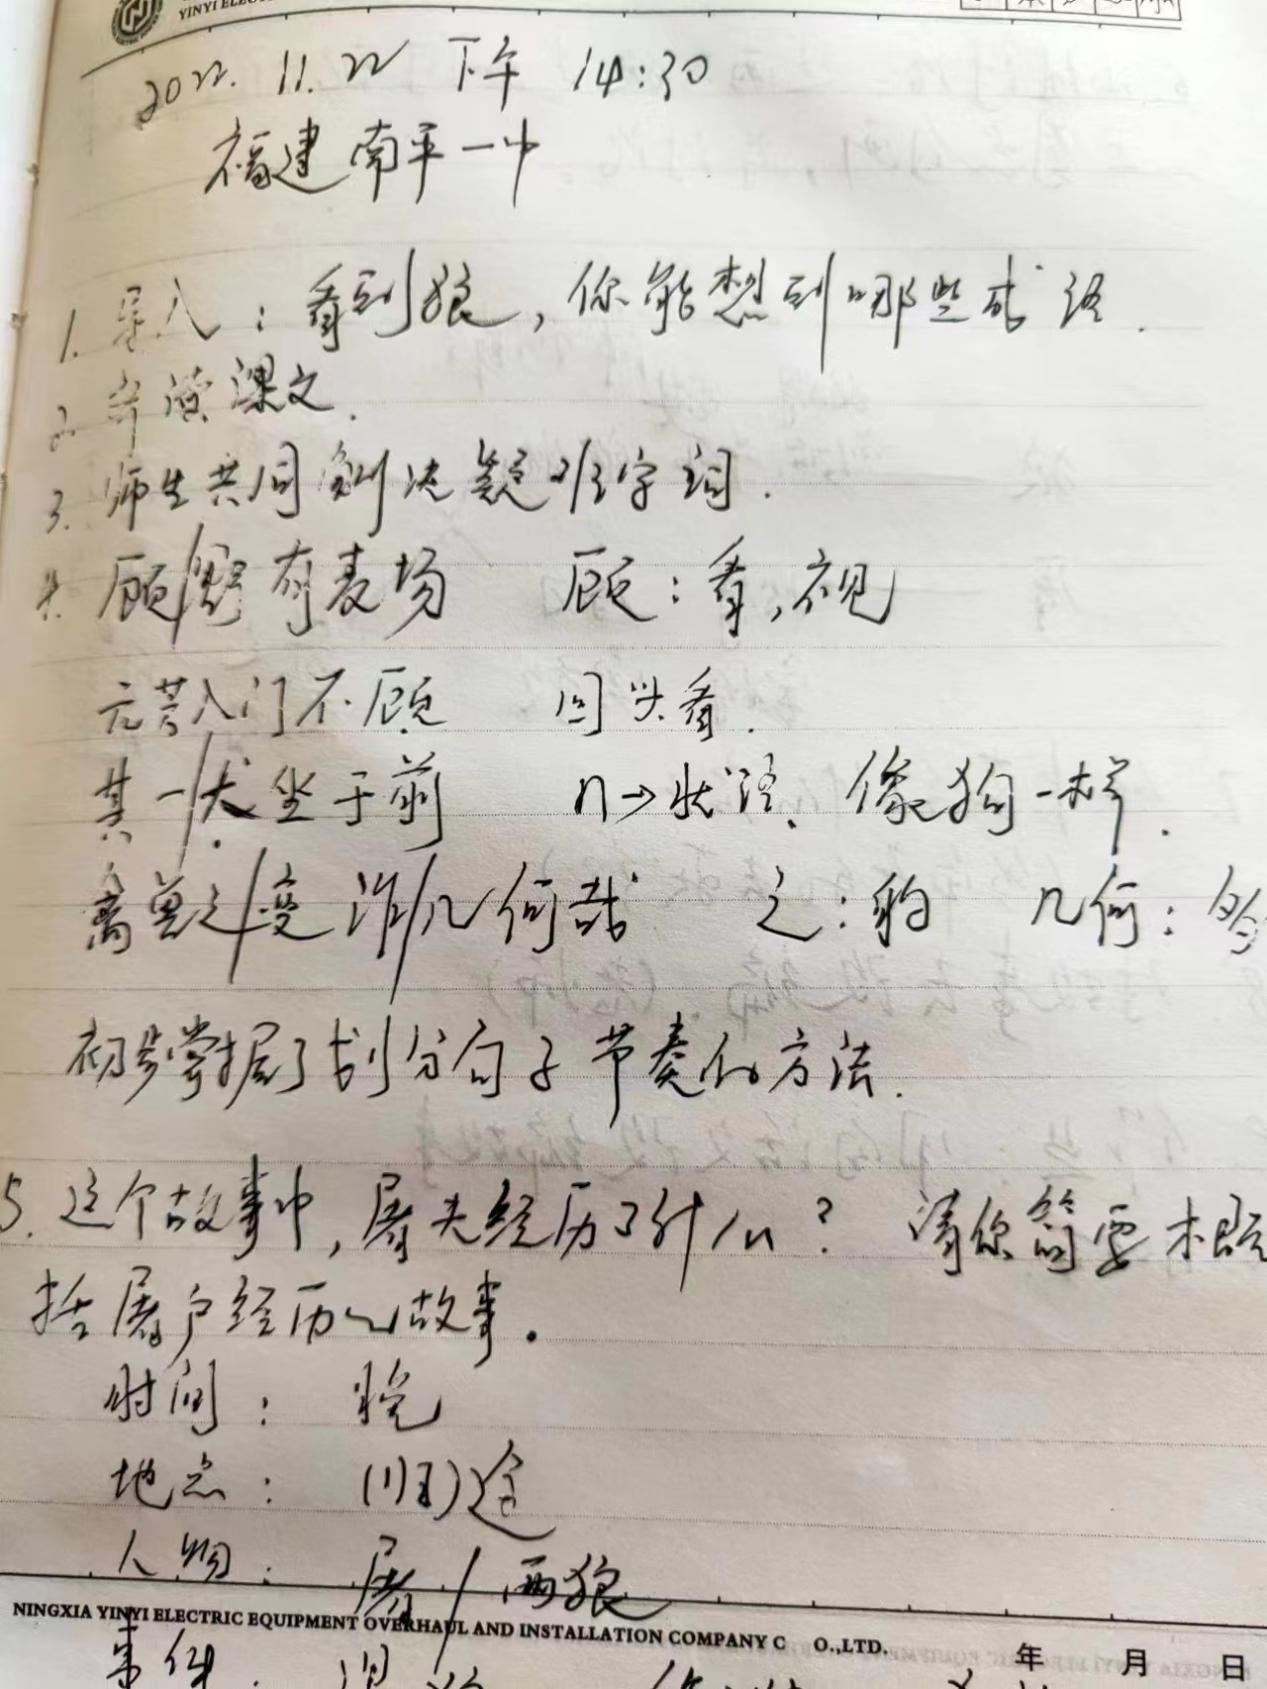 YINYI ELECT
2022. 11. 22 下午 14:30
福建南平一中
1. 导入：看到狼，你能想到哪些成语.
2. 齐读课文.
3. 师生共同解决疑难字词.
4. 顾/野有麦场 顾：看,视
元芳入门不顾 回头看.
其一/犬坐于前 n→状语、像狗一样.
禽兽之/变诈/几何哉 之：的 几何：
初步掌握了划分句子节奏的方法.
5. 这个故事中,屠夫经历了什么? 请你简要概
括屠户经历的故事。
时间： 晚
地点： (归)途
人物： 屠/两狼
NINGXIA YINYI ELECTRIC EQUIPMENT OVERHAUL AND INSTALLATION COMPANY C O.,LTD.
年 月 日
事件